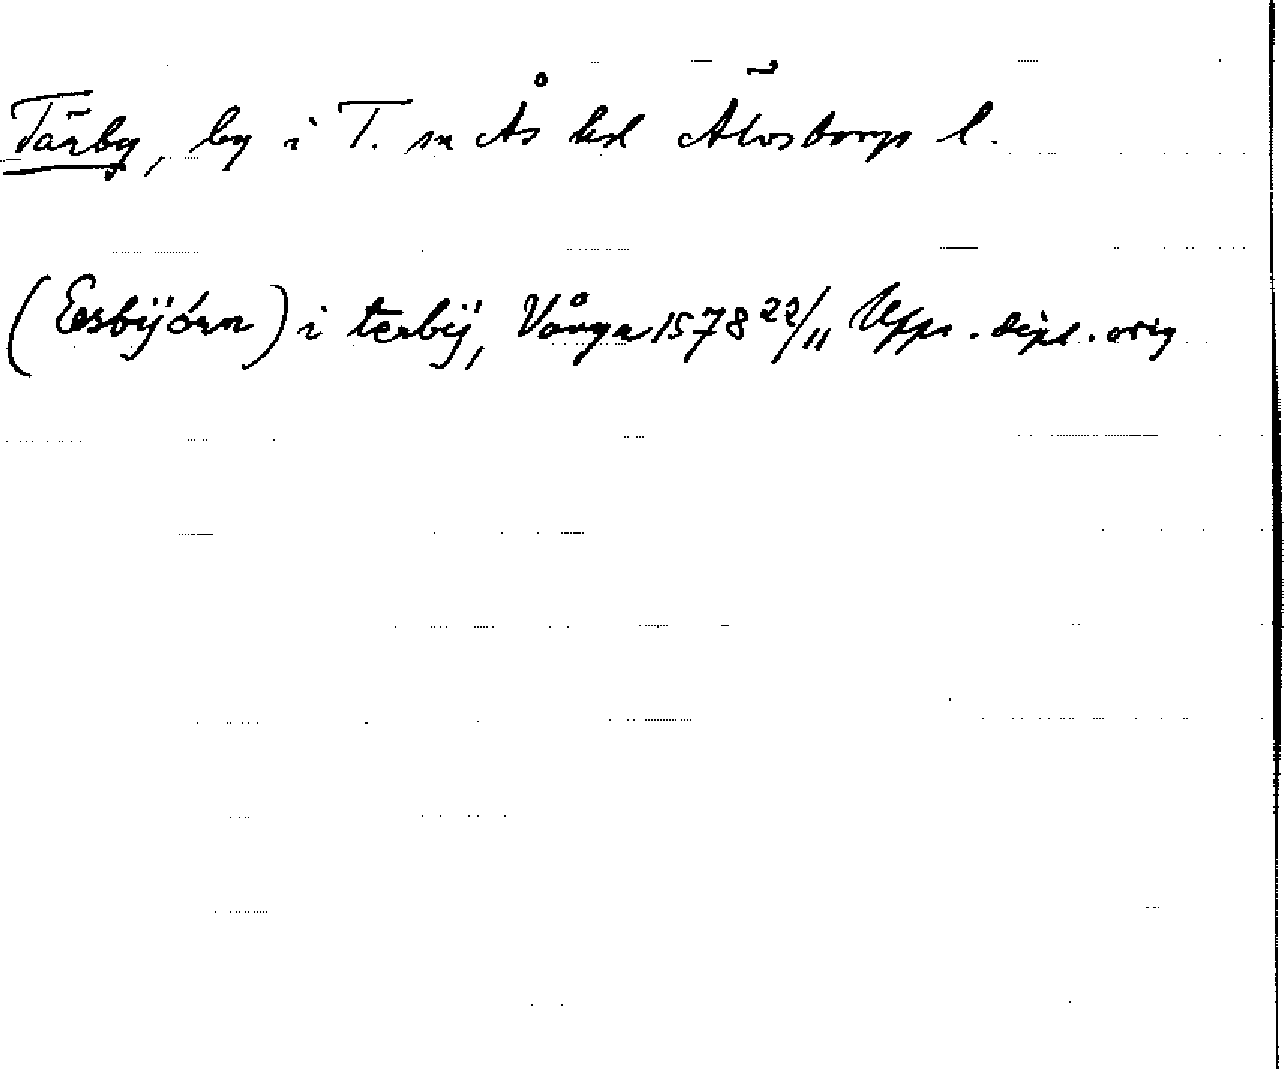 Tärby, by i T. sn Ås hd Älvsborgs l.
(Esbijórn) i terbij, Vånga 1578 22/11 Upps. dipl. orig